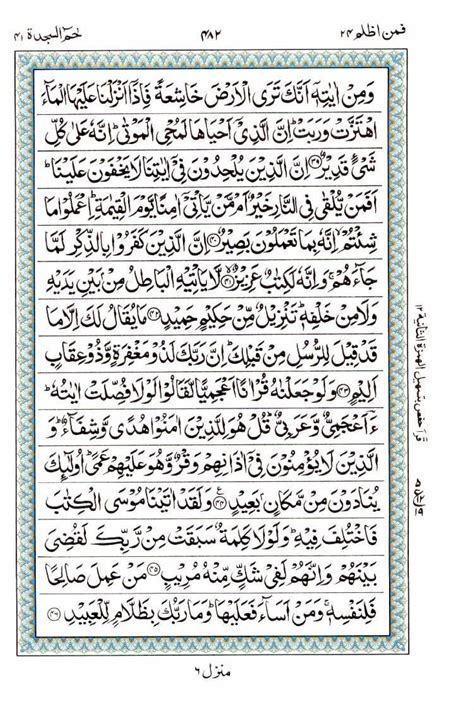 فمن اظلم ۲۴
۴۸۲
حٰمٓ السجدة ۴۱
وَمِنْ اٰيٰتِهٖٓ اَنَّكَ تَرَى الْاَرْضَ خَاشِعَةً فَاِذَآ اَنْزَلْنَا عَلَيْهَا الْمَآءَ
اهْتَزَّتْ وَرَبَتْ ؕ اِنَّ الَّذِيْٓ اَحْيَاهَا لَمُحْيِ الْمَوْتٰى ؕ اِنَّهٗ عَلٰى كُلِّ
شَيْءٍ قَدِيْرٌ ﴿۳۹﴾ اِنَّ الَّذِيْنَ يُلْحِدُوْنَ فِيْٓ اٰيٰتِنَا لَا يَخْفَوْنَ عَلَيْنَا ؕ
اَفَمَنْ يُّلْقٰى فِي النَّارِ خَيْرٌ اَمْ مَّنْ يَّاْتِيْٓ اٰمِنًا يَّوْمَ الْقِيٰمَةِ ؕ اِعْمَلُوْا مَا
شِئْتُمْ ۙ اِنَّهٗ بِمَا تَعْمَلُوْنَ بَصِيْرٌ ﴿۴۰﴾ اِنَّ الَّذِيْنَ كَفَرُوْا بِالذِّكْرِ لَمَّا
جَآءَهُمْ ۚ وَاِنَّهٗ لَكِتٰبٌ عَزِيْزٌ ﴿۴۱﴾ لَّا يَاْتِيْهِ الْبَاطِلُ مِنْۢ بَيْنِ يَدَيْهِ
وَلَا مِنْ خَلْفِهٖ ؕ تَنْزِيْلٌ مِّنْ حَكِيْمٍ حَمِيْدٍ ﴿۴۲﴾ مَا يُقَالُ لَكَ اِلَّا مَا
قَدْ قِيْلَ لِلرُّسُلِ مِنْ قَبْلِكَ ؕ اِنَّ رَبَّكَ لَذُوْ مَغْفِرَةٍ وَّذُوْ عِقَابٍ
اَلِيْمٍ ﴿۴۳﴾ وَلَوْ جَعَلْنٰهُ قُرْاٰنًا اَعْجَمِيًّا لَّقَالُوْا لَوْلَا فُصِّلَتْ اٰيٰتُهٗ ؕ
ءَاَعْجَمِيٌّ وَّعَرَبِيٌّ ؕ قُلْ هُوَ لِلَّذِيْنَ اٰمَنُوْا هُدًى وَّشِفَآءٌ ؕ وَ
الَّذِيْنَ لَا يُؤْمِنُوْنَ فِيْٓ اٰذَانِهِمْ وَقْرٌ وَّهُوَ عَلَيْهِمْ عَمًى ؕ اُولٰٓئِكَ
يُنَادَوْنَ مِنْ مَّكَانٍۢ بَعِيْدٍ ﴿۴۴﴾ وَلَقَدْ اٰتَيْنَا مُوْسَى الْكِتٰبَ
فَاخْتُلِفَ فِيْهِ ؕ وَلَوْلَا كَلِمَةٌ سَبَقَتْ مِنْ رَّبِّكَ لَقُضِيَ
بَيْنَهُمْ ؕ وَاِنَّهُمْ لَفِيْ شَكٍّ مِّنْهُ مُرِيْبٍ ﴿۴۵﴾ مَنْ عَمِلَ صَالِحًا
فَلِنَفْسِهٖ ۚ وَمَنْ اَسَآءَ فَعَلَيْهَا ؕ وَمَا رَبُّكَ بِظَلَّامٍ لِّلْعَبِيْدِ ﴿۴۶﴾
قرأ حفص بتسهيل الهمزة الثانية ۱۲
منزل ۶